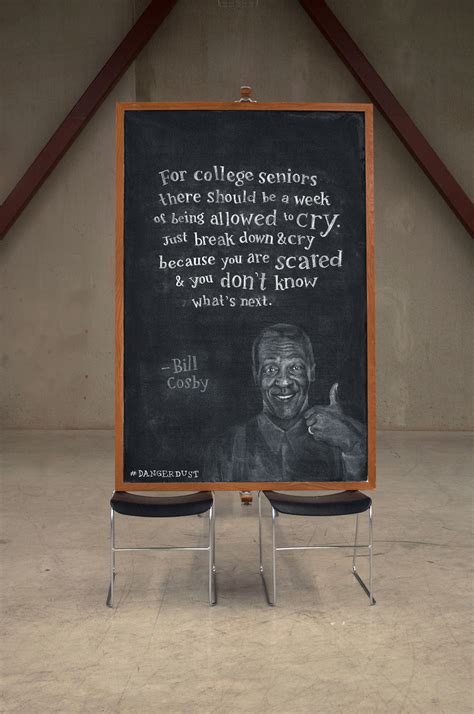 For college seniors
there should be a week
of being allowed to cry.
Just break down & cry
because you are scared
& you don't know
what's next.
– Bill
Cosby
#DANGERDUST